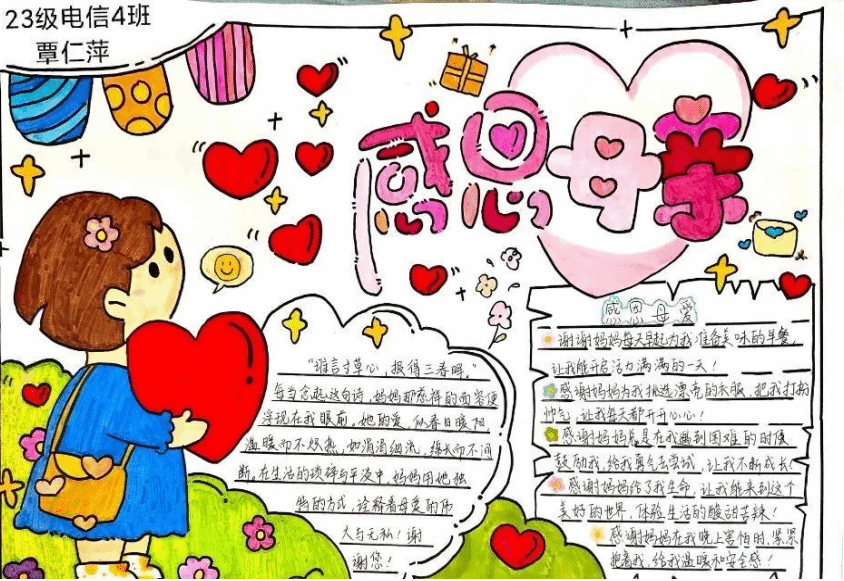 23级电信4班
覃仁萍
感恩母亲
"谁言寸草心,报得三春晖。"
每当念起这句诗,妈妈那慈祥的面容便
浮现在我眼前。她的爱,似春日暖阳,
温暖而不炽热,如涓涓细流,绵长而不间
断。在生活的琐碎与平淡中,妈妈用她独
特的方式,诠释着母爱的伟
大与无私!谢
谢您!
感恩母爱
谢谢妈妈每天早起为我准备美味的早餐,
让我能开启活力满满的一天!
感谢妈妈为我挑选漂亮的衣服,把我打扮
帅气,让我每天都开开心心!
感谢妈妈总是在我遇到困难的时候
鼓励我,给我勇气去尝试,让我不断成长!
感谢妈妈给了我生命,让我能来到这个
美好的世界,体验生活的酸甜苦辣!
感谢妈妈在我晚上害怕时,紧紧
抱着我,给我温暖和安全感!